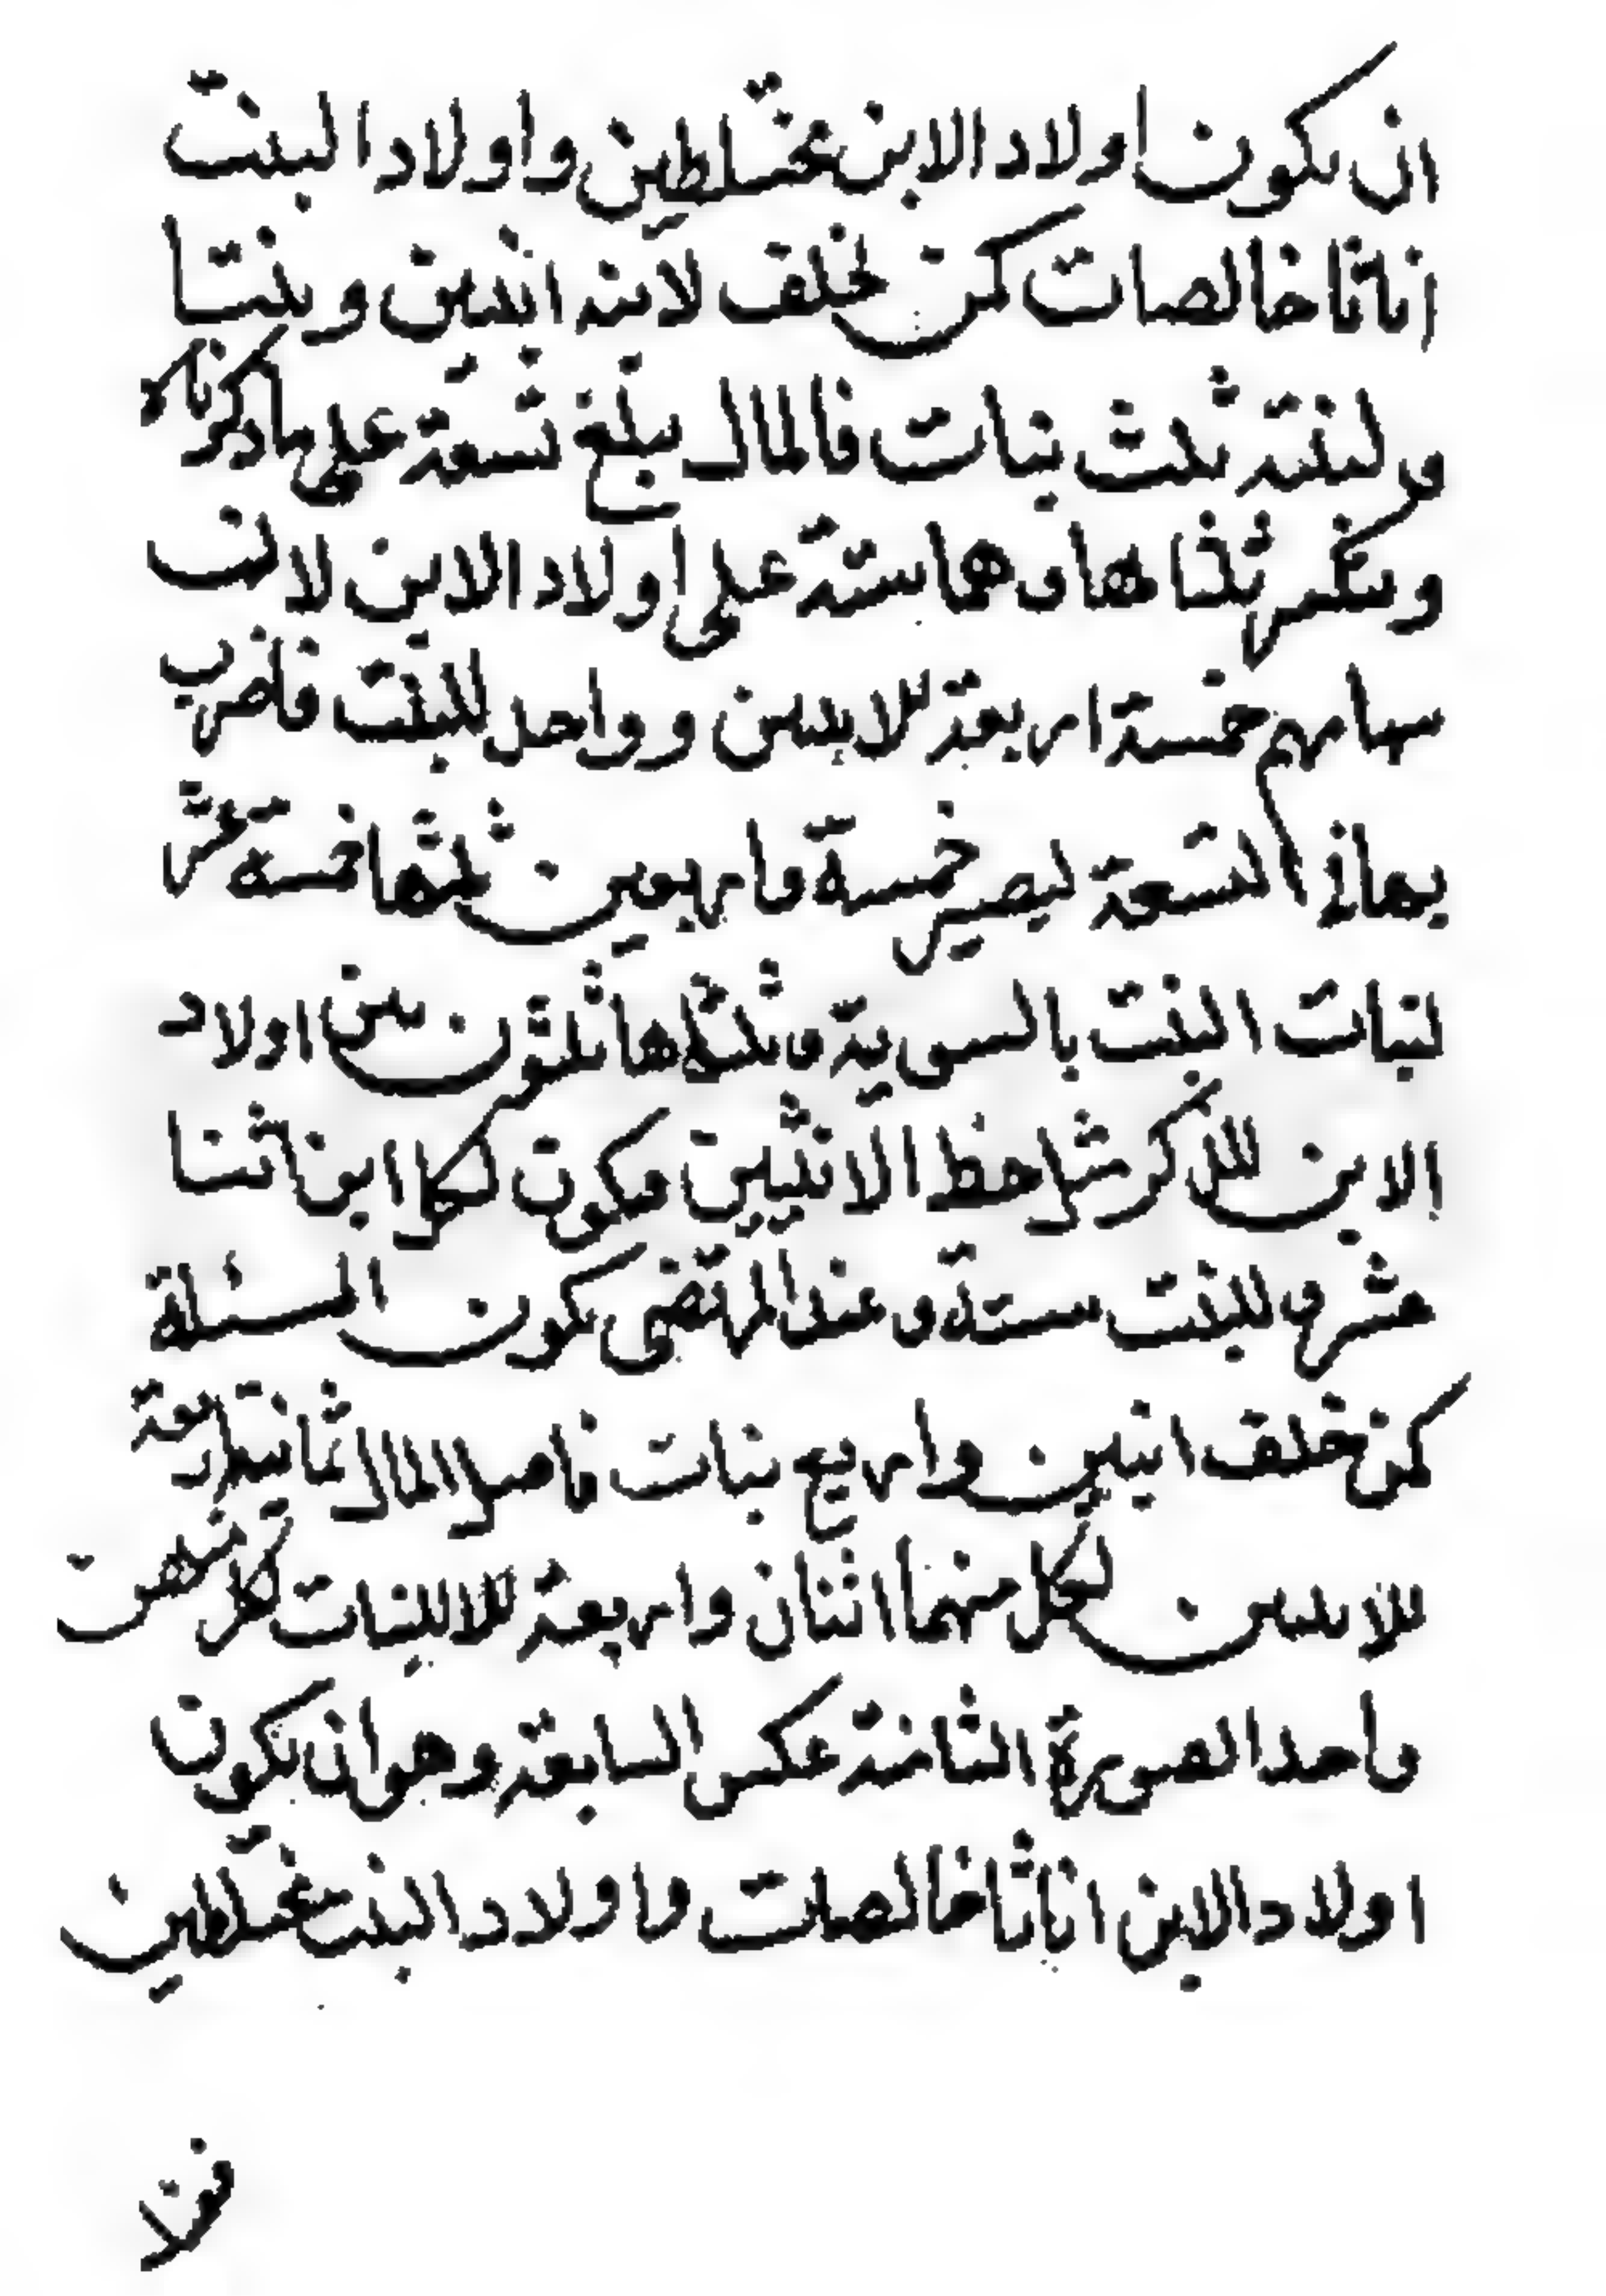 ان يكون اولاد الابن مختلطين و اولاد البنت
اناثا خالصات كمن يخلف لابنه ابنين و بنتا
و لبنته ثلث بنات فالمال يبلغ تسعة على ما ذكرناه
و ينكسر ثلثاها و هما ستة على اولاد الابن لان
سهامهم خمسة اربعة للابنين و واحد للبنت فاضرب
بها في التسعة ليصير خمسة و اربعين ثلثها خمسة عشر
لبنات البنت بالسوية و ثلثاها ثلثون بين اولاد
الابن للذكر مثل حظ الانثيين فيكون لكل ابن اثنا
عشر و للبنت ستة و عند المرتضى يكون المسئلة
كمن خلف ابنين و اربع بنات فاصل المال ثمانية اربعة
للابنين لكل منهما اثنان و اربعة للبنات لكل منهن
واحد الصورة الثامنة عكس السابعة و هو ان يكون
اولاد الابن اناثا خالصات و اولاد البنت مختلطين